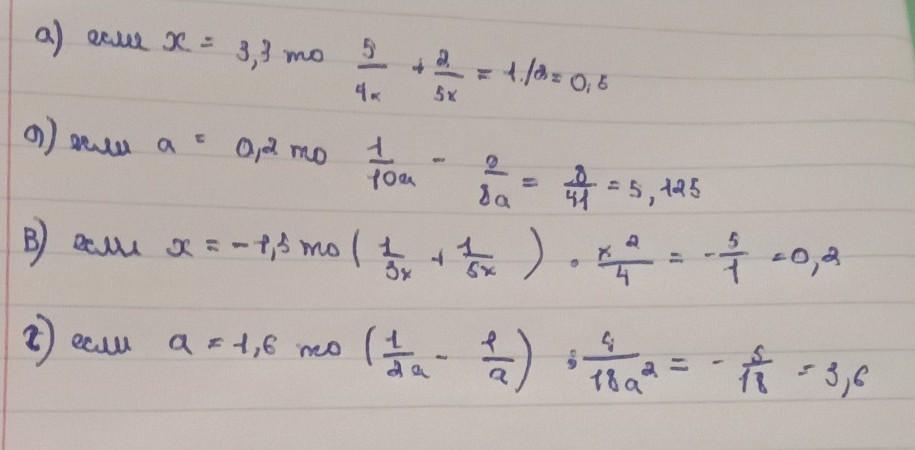 а) если x = 3,3 то 5/4x + 2/5x = 1/2 = 0,5
б) если a = 0,2 то 1/10a - 9/8a = 8/41 = 5,125
в) если x = -1,5 то (1/3x + 1/5x) · x²/4 = - 5/1 = 0,2
г) если a = 1,6 то (1/2a - 1/a) : 4/18a² = - 5/18 = 3,6